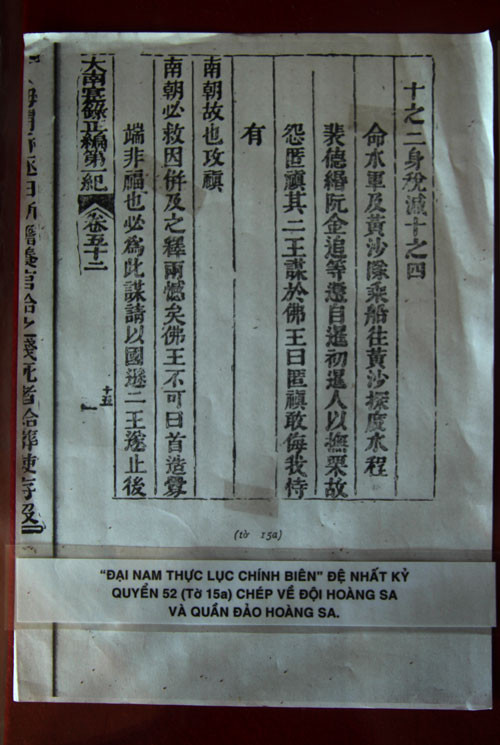 十之二身稅減十之四
命水軍及黃沙隊乘船往黃沙探度水程
裴德縉阮金追等還自暹初暹人以撫栗故
怨匿禛其二王謀於佛王曰匿禛敢侮我恃
有
南朝故也攻禛
南朝必救因併及之釋兩憾矣佛王不可曰首造釁
端非福也必為此謀請以國遜二王遂止後
大南寔錄正編第一紀 卷五十二
十五
(tờ 15a)
"ĐẠI NAM THỰC LỤC CHÍNH BIÊN" ĐỆ NHẤT KỶ
QUYỂN 52 (Tờ 15a) CHÉP VỀ ĐỘI HOÀNG SA
VÀ QUẦN ĐẢO HOÀNG SA.